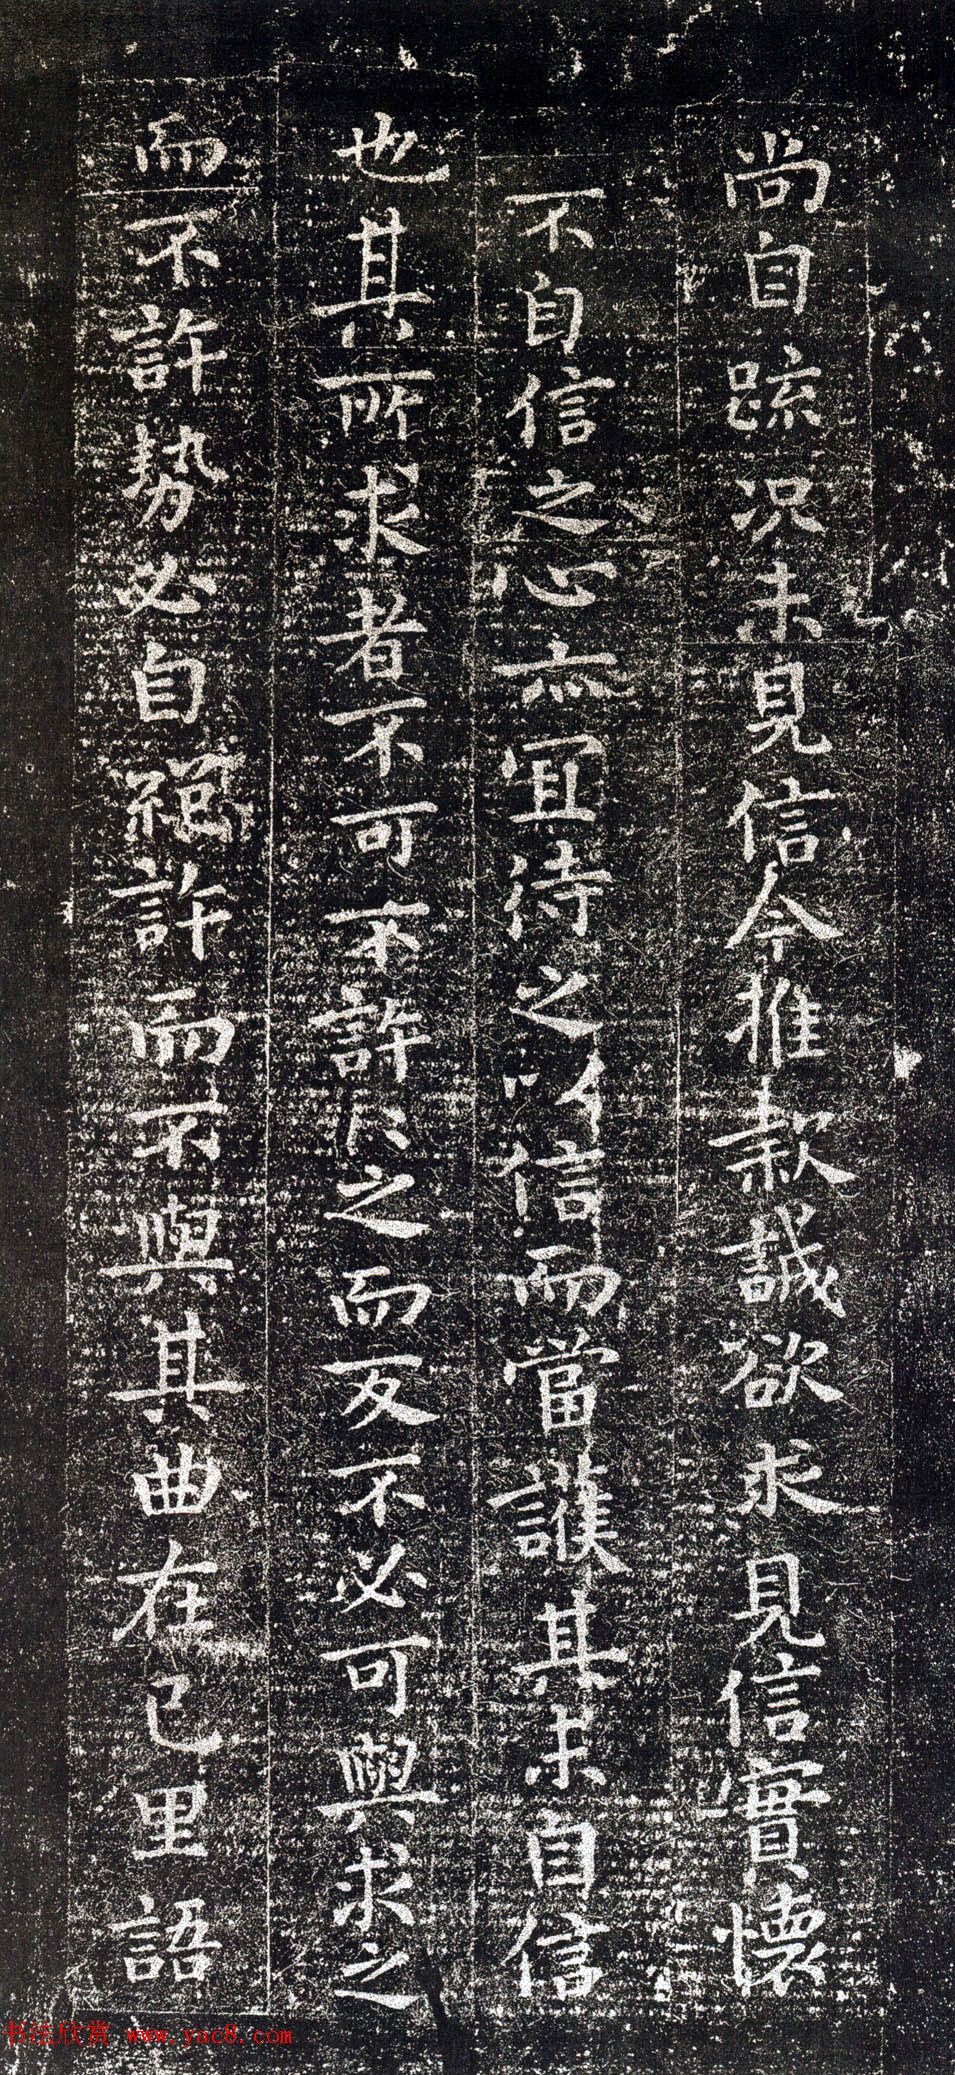 尚自疏況未見信今推款誠欲求見信實懷
不自信之心亦宜待之以信而當護其未自信
也其所求者不可不許許之而反不必可與求之
而不許勢必自絕許而不與其曲在己里語
书法欣赏 www.yac8.com